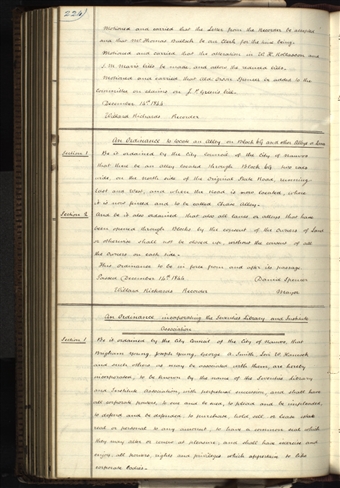 224)
Motioned and carried that the Letter from the Recorder be accepted
and that Mr Thomas Bullock be our Clerk for the time being.
Motioned and carried that the alteration in W. W. 
J. M. bill be made and allow the named bills.
Motioned and carried that Ald. Orson Spencer be added to the
Committee on claims on J. P. Greene's bill.
December 14th 1844
Willard Richards Recorder
An Ordinance to locate an Alley on Block and other Alleys or Lanes
Section 1. Be it ordained by the City Council of the City of Nauvoo
that there be an Alley located through Block two rods
wide, on the north side of the Original State Road, running
East and West, and when the Road is more located, where
it is now fenced and to be called Chase Alley.
Section 2. And be it also ordained, that also all lanes, or alleys that have
been opened through Blocks by the consent of the Owners of Land
or otherwise shall not be closed up, without the consent of all
the Owners on each side.
This Ordinance to be in force from and after its passage.
Passed December 14th 1844. Daniel Spencer
Willard Richards Recorder Mayor
An Ordinance incorporating the Seventies Library and Institute
Association
Section 1. Be it ordained by the City Council of the City of Nauvoo, that
Brigham Young, Joseph Young, George A. Smith, Levi W. Hancock
and such others as may be associated with them, are hereby
incorporated, to be known by the name of the Seventies Library
and Institute Association, with perpetual succession, and shall have
all corporate powers, to sue and be sued, to plead and be impleaded,
to defend and be defended, to purchase, hold, sell, or lease estate
real or personal to any amount; to have a common seal which
they may alter or renew at pleasure, and shall have exercise and
enjoy, all powers, rights and privileges which appertain to like
corporate bodies.